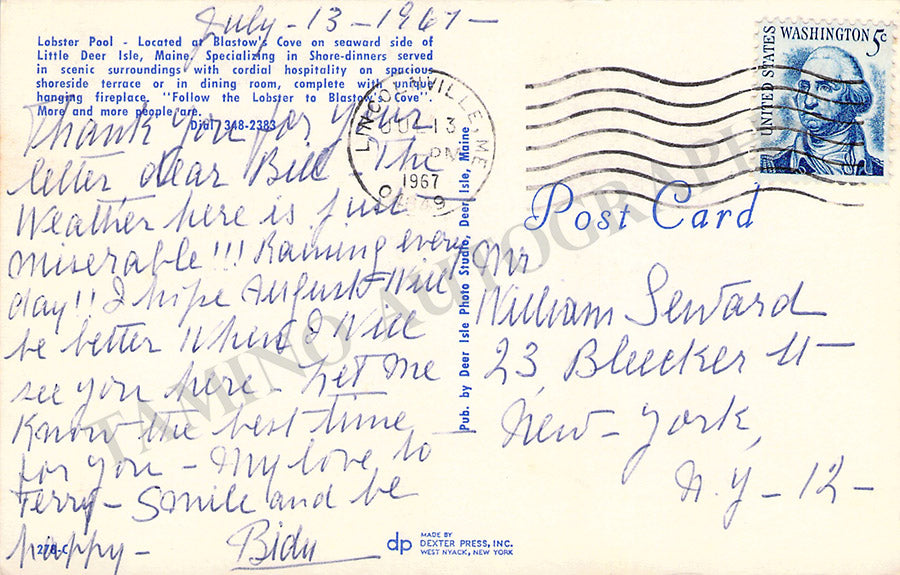 July-13-1967-
Lobster Pool - Located at Blastow's Cove on seaward side of
Little Deer Isle, Maine. Specializing in Shore-dinners served
in scenic surroundings with cordial hospitality on spacious
shoreside terrace or in dining room, complete with unique
hanging fireplace. "Follow the Lobster to Blastow's Cove".
More and more people are.
Dial 348-2383
Thank you for your
letter dear Bill The
Weather here is just
miserable!!! Raining every
day!! I hope August Will
be better When I Will
see you here - Let me
Know the best time
for you - My love to
Terry - Smile and be
happy -
Bidu
278-C
Pub. by Deer Isle Photo Studio, Deer Isle, Maine
LINCOLNVILLE, ME.
JUL 13
PM
1967
04849
UNITED STATES
WASHINGTON 5c
Post Card
Mr
William Seward
23 Bleecker St -
New-York,
N.Y-12-
dp
MADE BY
DEXTER PRESS, INC.
WEST NYACK, NEW YORK
TAMINO AUTOGRAPHS